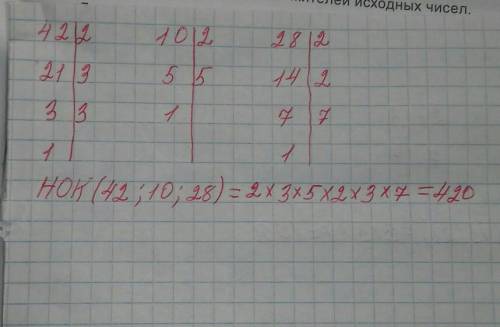 жителей исходных чисел.
42|2 10|2 28|2
21|3 5|5 14|2
3|3 1| 7|7
1| 1|
НОК(42;10;28)=2×3×5×2×3×7=420